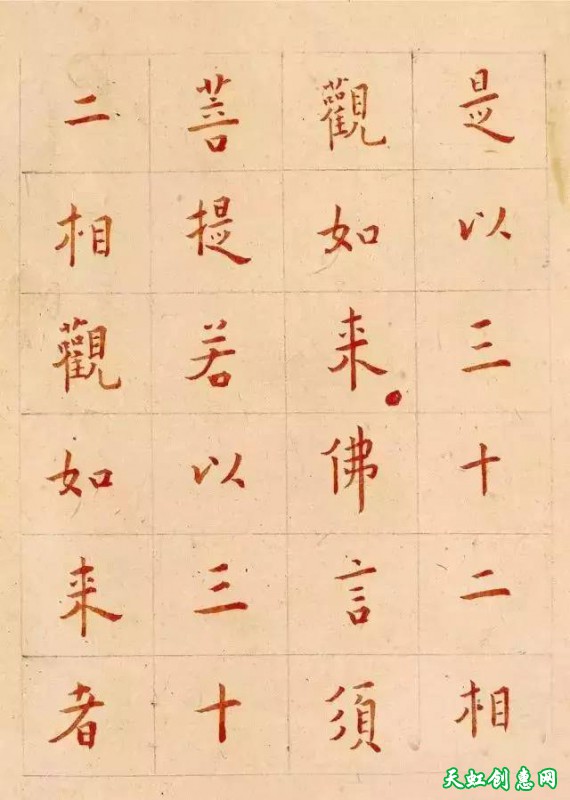 是以三十二相
觀如来佛言須
菩提若以三十
二相觀如来者
天虹创惠网